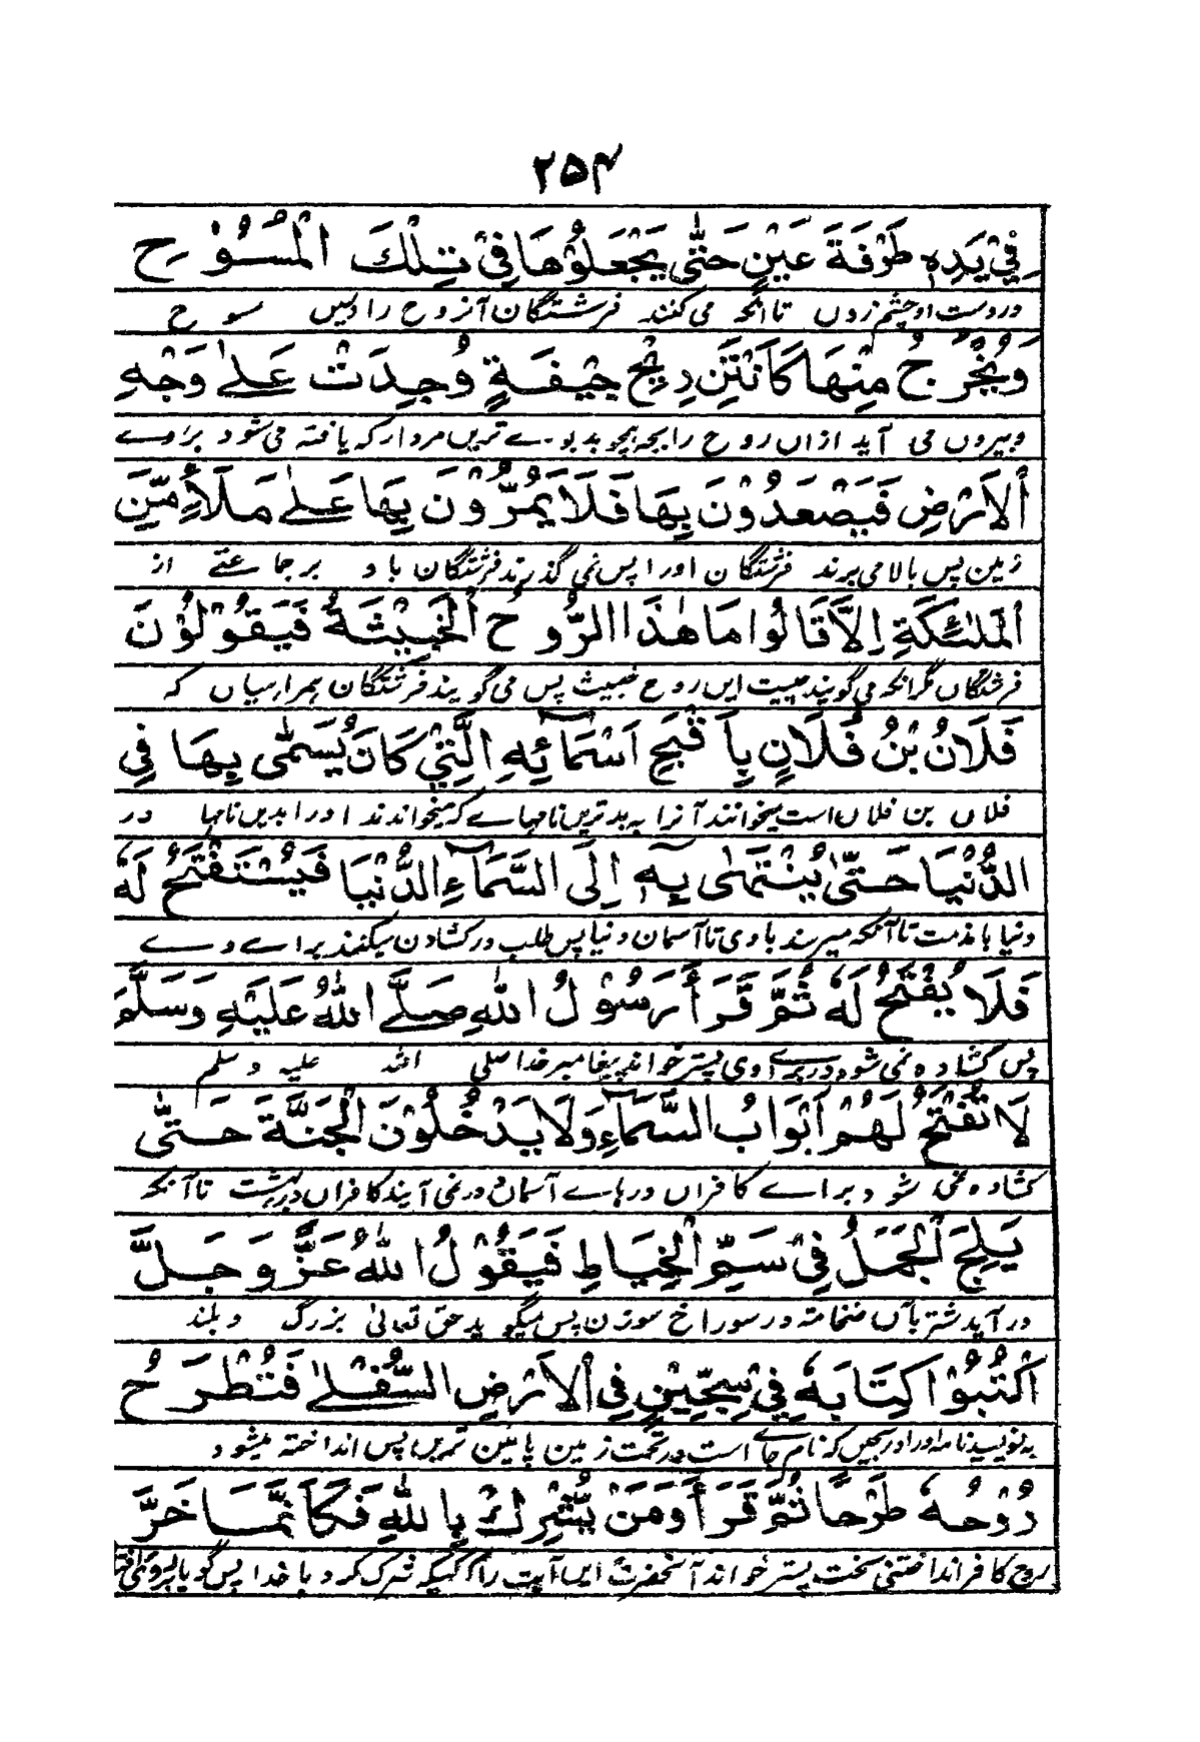 ۲۵۴
فِيْ يَدِهٖ طَرْفَةَ عَيْنٍ حَتّٰى يَجْعَلُوْهَا فِيْ تِلْكَ الْمُسُوْحِ
در دست او چشم زدن تا آنکه می کنند فرشتگان آنروح را دریں سوح
وَيَخْرُجُ مِنْهَا كَاَنْتَنِ رِيْحِ جِيْفَةٍ وُجِدَتْ عَلٰى وَجْهِ
و بیروں می آید ازاں روح رایحه همچو بدبوے تریں مردار که یافته می شود بر روے
الْاَرْضِ فَيَصْعَدُوْنَ بِهَا فَلَا يَمُرُّوْنَ بِهَا عَلٰى مَلَأٍ مِّنَ
زمین پس بالا می برند فرشتگان اورا پس نمی گذرند فرشتگان باو بر جماعتے از
الْمَلٰئِكَةِ اِلَّا قَالُوا مَا هٰذَا الرُّوحُ الْخَبِيْثَةُ فَيَقُوْلُوْنَ
فرشتگاں مگر آنکه می گویند چیست ایں روح خبیث پس می گویند فرشتگان همراهیاں که
فُلَانُ بْنُ فُلَانٍ بِاَقْبَحِ اَسْمَآئِهِ الَّتِيْ كَانَ يُسَمّٰى بِهَا فِي
فلاں بن فلاں است میخوانند آنرا به بدترین نامهاے که میخواندند اورا بدیں نامها در
الدُّنْيَا حَتّٰى يُنْتَهٰى بِهٖ اِلَى السَّمَآءِ الدُّنْيَا فَيُسْتَفْتَحُ لَهٗ
دنیا بامذمت تا آنکه میرسند باوی تا آسمان دنیا پس طلب در کشادن میکنند براے وے
فَلَا يُفْتَحُ لَهٗ ثُمَّ قَرَأَ رَسُوْلُ اللّٰهِ صَلَّى اللّٰهُ عَلَيْهِ وَسَلَّمَ
پس کشاده نمی شود در براے اوی پستر خواند پیغامبر خدا صلی الله علیه وسلم
لَا تُفَتَّحُ لَهُمْ اَبْوَابُ السَّمَآءِ وَلَا يَدْخُلُوْنَ الْجَنَّةَ حَتّٰى
کشاده نمی شود براے کافراں درهاے آسمان و در نمی آیند کافراں در بهشت تا آنکه
يَلِجَ الْجَمَلُ فِيْ سَمِّ الْخِيَاطِ فَيَقُوْلُ اللّٰهُ عَزَّ وَجَلَّ
در آید شتر بآں ضخامته در سوراخ سوزن پس میگوید حق تعالیٰ بزرگ و بلند
اكْتُبُوْا كِتَابَهٗ فِيْ سِجِّيْنٍ فِي الْاَرْضِ السُّفْلٰى فَتُطْرَحُ
به نویسید نامه اورا در سجیں که نام جاے است در تحت زمین پائین تریں پس انداخته میشود
رُوْحُهٗ طَرْحًا ثُمَّ قَرَأَ وَمَنْ يُّشْرِكْ بِاللّٰهِ فَكَاَنَّمَا خَرَّ
روح کافر انداختنی سخت پستر خواند آنحضرت ایں آیت را که کسیکه شرک کرد با خدا پس گویا